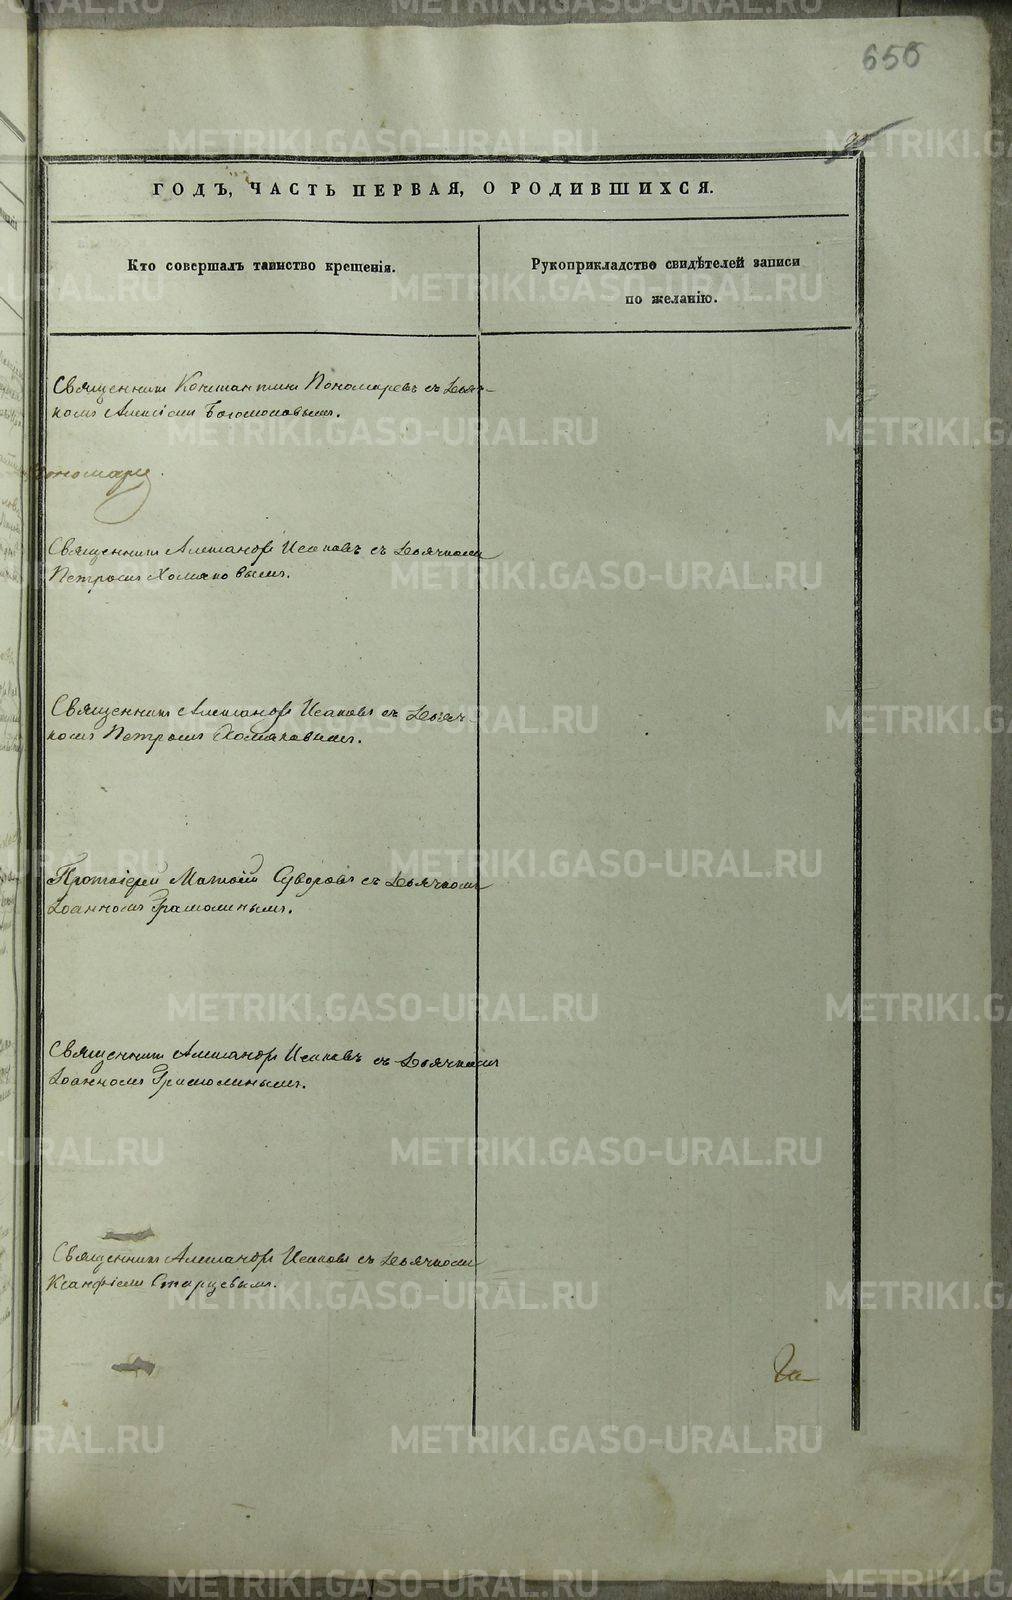 650
ГОДЪ, ЧАСТЬ ПЕРВАЯ, О РОДИВШИХСЯ.
Кто совершалъ таинство крещенія.
Рукоприкладство свидѣтелей записи
по желанію.
Священникъ Константинъ Пономаревъ съ Дьяч-
комъ Алексіемъ Богомоловымъ.
Священникъ Александръ Исаковъ съ Дьячкомъ
Петромъ Хомяковымъ.
Священникъ Александръ Исаковъ съ Дьяч-
комъ Петромъ Хомяковымъ.
Протоіерей Матѳій Суворовъ съ Дьячкомъ
Іоанномъ Грамолинымъ.
Священникъ Александръ Исаковъ съ Дьячкомъ
Іоанномъ Грамолинымъ.
Священникъ Александръ Исаковъ съ Дьячкомъ
Ксанфіемъ Старцевымъ.
METRIKI.GASO-URAL.RU